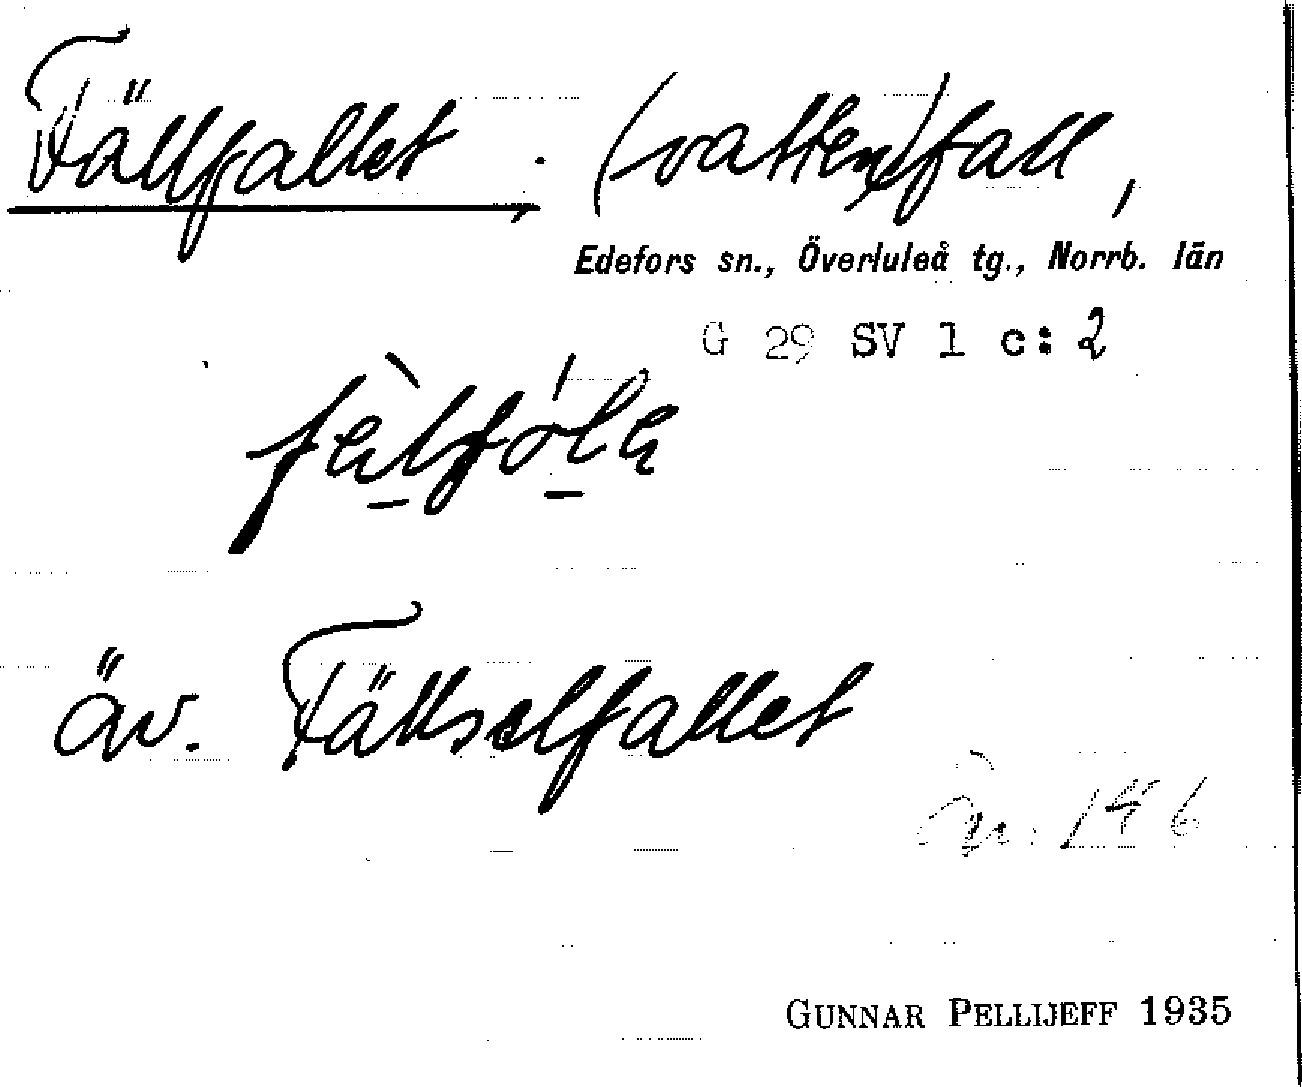 Fällfallet. (vatten)fall,
Edefors sn., Överluleå tg., Norrb. län
G 29 SV 1 c: 2
äv. Fällselfallet
GUNNAR PELLIJEFF 1935